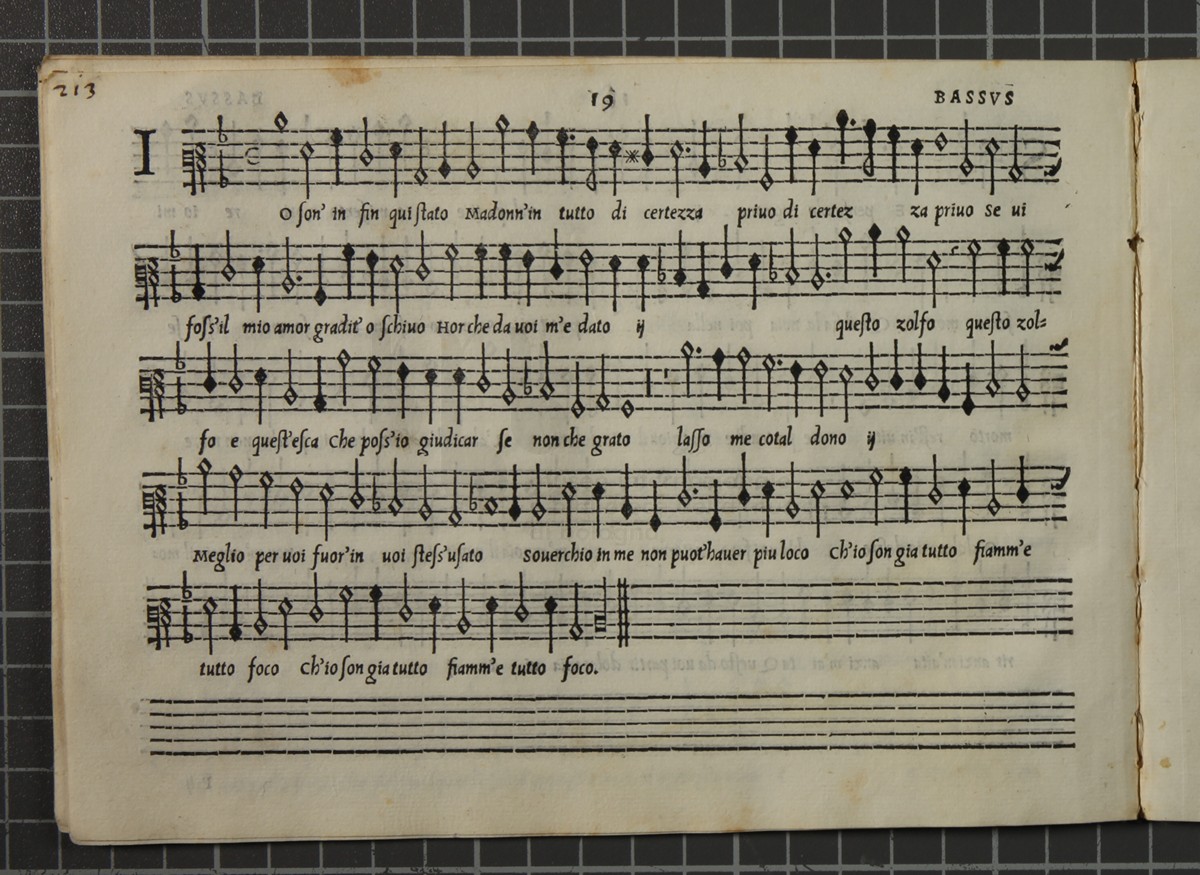 213
19
BASSVS
I
O ſon' in fin qui ſtato Madonn'in tutto di certezza priuo di certez za priuo Se ui
foſs'il mio amor gradit' o ſchiuo Hor che da uoi m'e dato ij queſto zolfo queſto zol=
fo e queſt'eſca Che poſs'io giudicar ſe non che grato laſſo me cotal dono ij
Meglio per uoi fuor'in uoi ſteſs'uſato Souerchio in me non puot'hauer piu loco Ch'io ſon gia tutto fiamm'e
tutto foco Ch'io ſon gia tutto fiamm'e tutto foco.